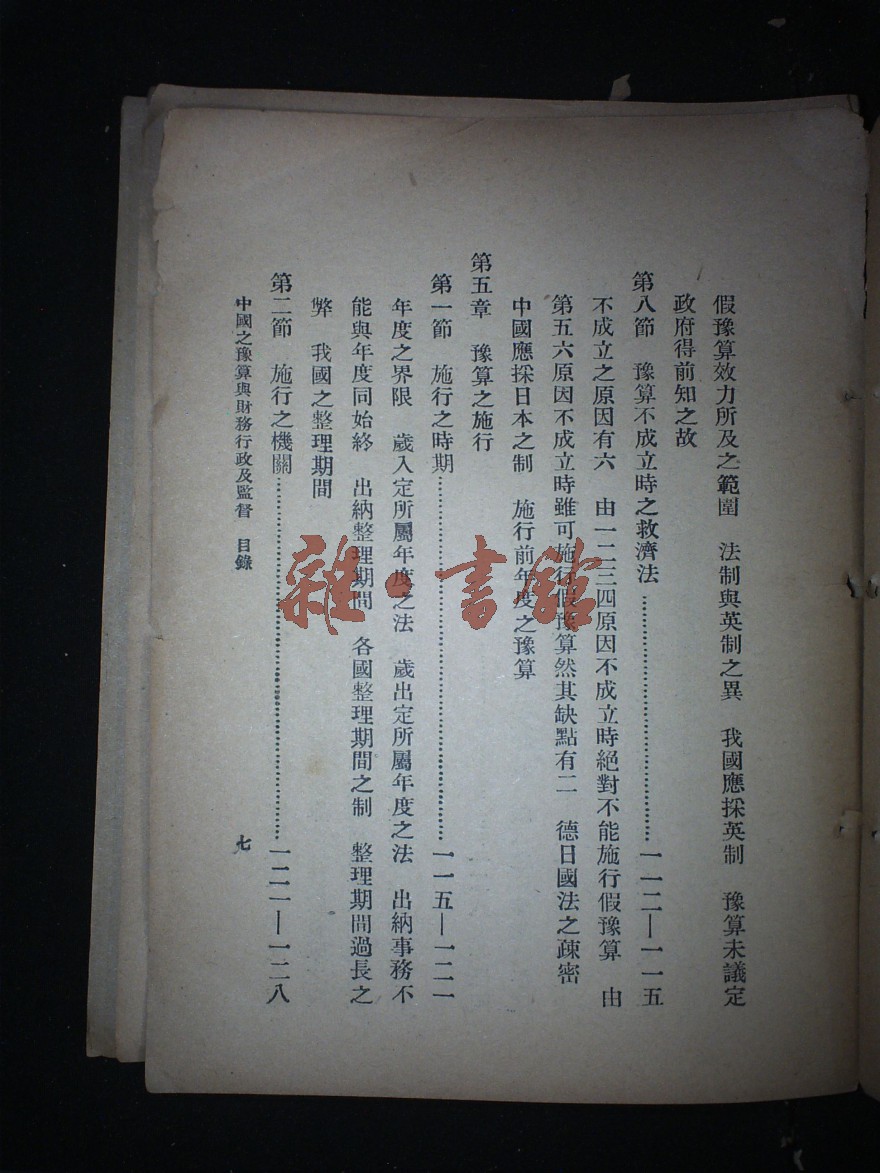 假豫算效力所及之範圍　法制與英制之異　我國應採英制　豫算未議定
政府得前知之故
第八節　豫算不成立時之救濟法……………………一一二—一一五
不成立之原因有六　由一二三四原因不成立時絕對不能施行假豫算　由
第五六原因不成立時雖可施行假豫算然其缺點有二　德日國法之疎密
中國應採日本之制　施行前年度之豫算
第五章　豫算之施行
第一節　施行之時期……………………一一五—一二一
年度之界限　歲入定所屬年度之法　歲出定所屬年度之法　出納事務不
能與年度同始終　出納整理期間　各國整理期間之制　整理期間過長之
弊　我國之整理期間
第二節　施行之機關……………………一二一—一二八
中國之豫算與財務行政及監督　目錄
七
雜·書館